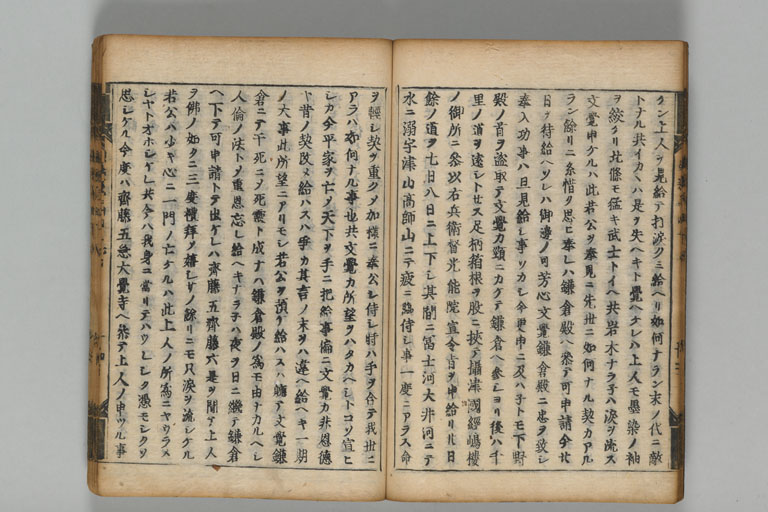 クン上人ヲ見給テ打涙クミ給ヘリ如何ナラン末ノ代ニ敵
トナル共イカヘハ是ヲ失ヘキトテ覺ヘケレハ上人モ墨染ノ袖
ヲ絞リ北條モ猛キ武士トイヘ共岩木ナラ子ハ涙ヲ流ス
文覺申ケルハ此若公ヲ奉見ニ先世ニ如何ナル契カアル
ラン餘リニ糸惜ク思ヒ奉レハ鎌倉殿ヘ参テ可申請今廿
日ヲ待給ヘソレハ御邊ノ可芳心文覺鎌倉殿ニ忠ヲ致シ
奉入功事ハ旦見給シ事ソカシ今更申ニ及ハ子トモ下野
殿ノ首ヲ盗取テ文覺カ頸ニカケテ鎌倉ヘ参シヨリ後ハ千
里ノ道ヲ遠シトセス足柄箱根ヲ股ニ挾テ攝津國經嶋樓
ノ御所ニ参以右兵衛督光能院宣令旨ヲ申給リ廿日
餘ノ道ヲ七日八日ニ上下シ其間ニ冨士河大井河ニテ
水ニ溺宇津山高師山ニテ疲ニ臨侍シ事一度ニアラス命
ヲ輕シ契ヲ重クメ加樣ニ奉公シ侍シ時ハ手ヲ合テ我世ニ
アラハ如何ナル事也共文覺カ所望ヲハタカヘシトコソ宣ヒ
シカ今平家ヲ亡メ天下ヲ手ニ把給事偏ニ文覺カ非恩德
ト昔ノ契改メ給ハスハ爭カ其言ノ末ヲハ違ヘ給ヘキ一期
ノ大事此所望ニアリモシ若公ヲ預リ給ハスハ軈テ文覺鎌
倉ニテ干死ニメ死靈ト成ナハ鎌倉殿ノ爲モ由ナカルヘシ
人倫ノ法トメ重恩忘シ給ヘキナラ子ハ夜ヲ日ニ継テ鎌倉
ヘ下テ可申請トテ出ケレハ齊藤五齊藤六是ヲ聞テ上人
ヲ佛ノ如クニ三度禮拜ヲ嬉シサノ餘リニモ只涙ヲ流シケル
若公ハ少キ心ニ一門ノ亡ケルハ此上人ノ所爲ニヤウラメ
シヤトオホシケレ共今ハ我身ニ當リテハウレシク憑モシクソ
思シケル今度ハ齊藤五急大覺寺ヘ参テ上人ノ申ツル事